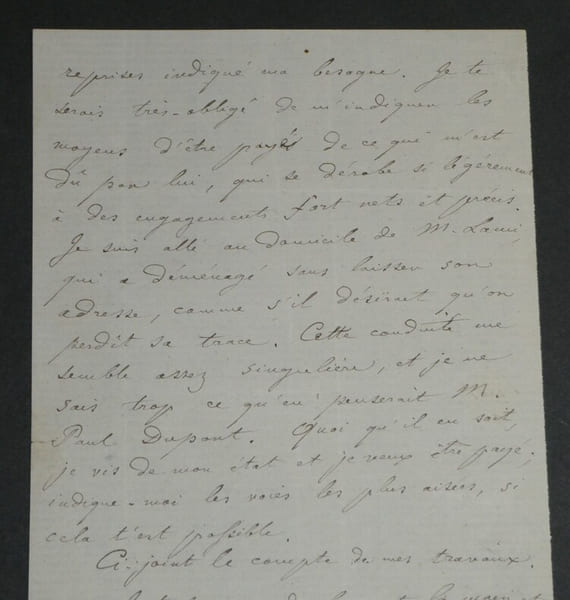 reprises indiqué ma besogne. Je te
serais très-obligé de m'indiquer les
moyens d'être payé de ce qui m'est
dû par lui, qui se dérobe si légèrement
à des engagements fort nets et précis.
Je suis allé au domicile de M. Lami,
qui a déménagé sans laisser son
adresse, comme s'il désirait qu'on
perdît sa trace. Cette conduite me
semble assez singulière, et je ne
sais trop ce qu'en penserait M.
Paul Dupont. Quoi qu'il en soit,
je vis de mon état et je veux être payé;
indique-moi les voies les plus aisées, si
cela t'est possible.
Ci-joint le compte de mes travaux.